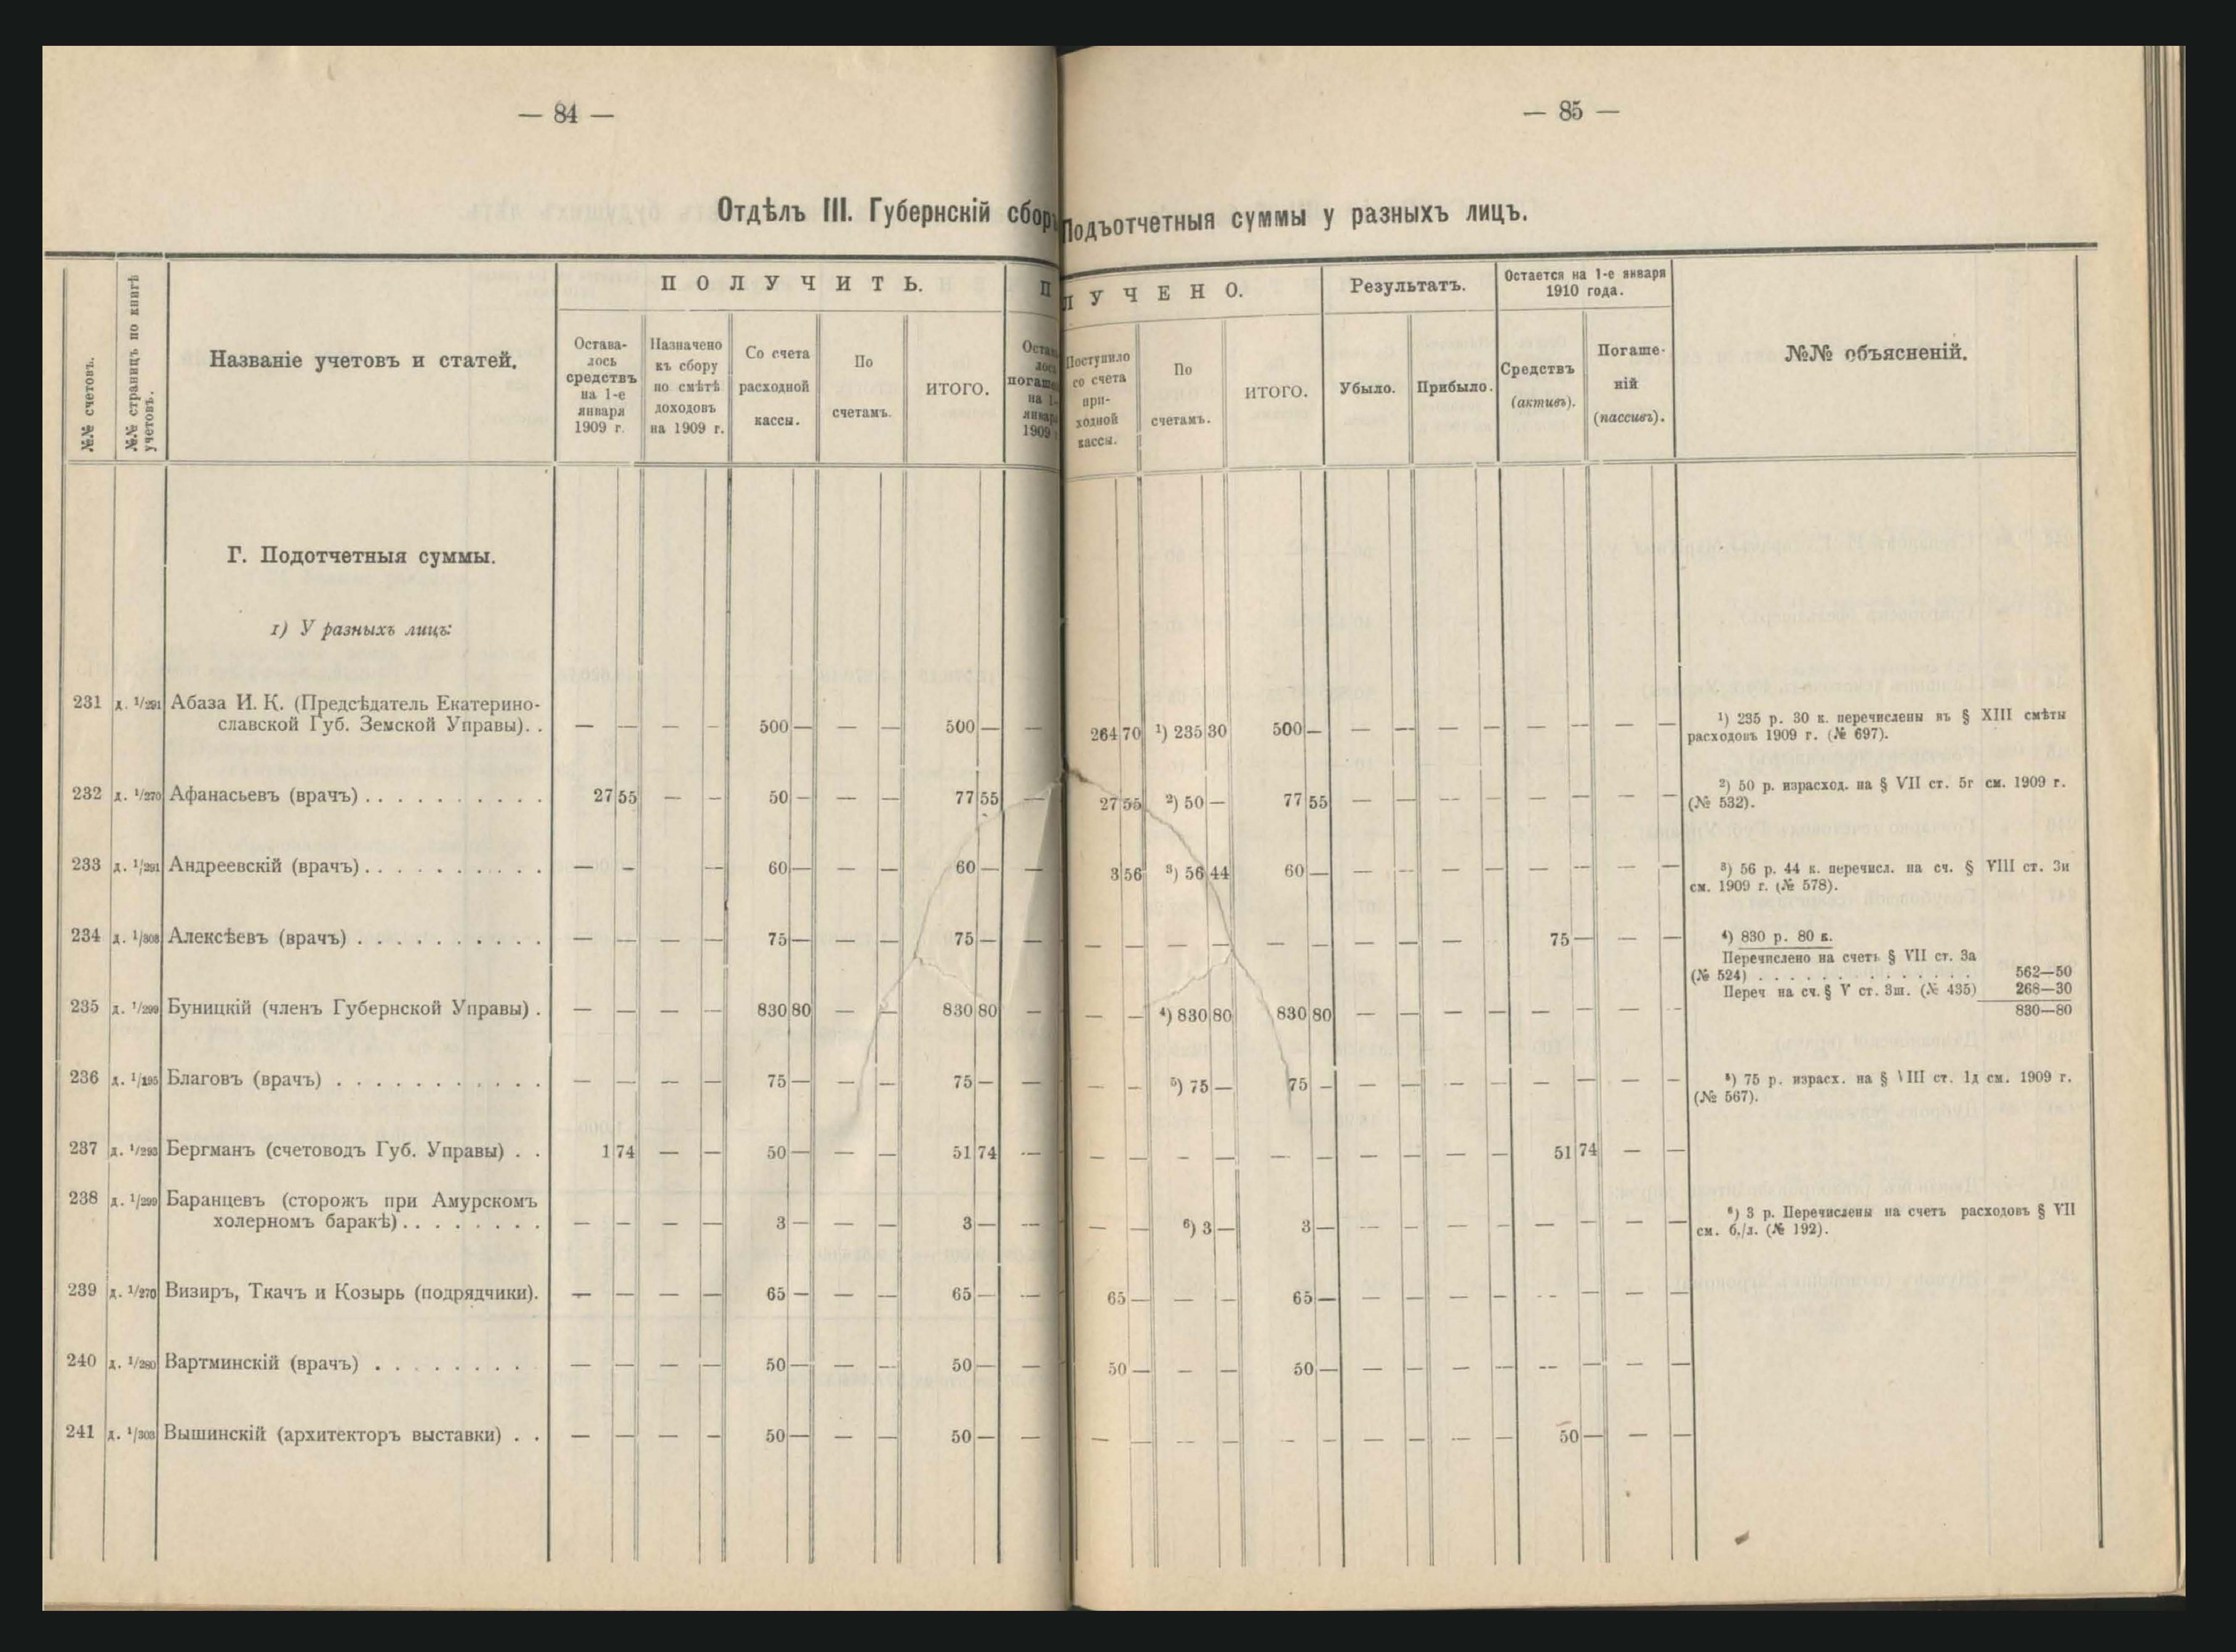 — 84 —
Отдѣлъ III. Губернскій сборъ
№№ счетовъ.
№№ страницъ по книгѣ
учетовъ.
Названіе учетовъ и статей.
ПОЛУЧИТЬ.
П
Остава-
лось
средствъ
на 1-е
января
1909 г.
Назначено
къ сбору
по смѣтѣ
доходовъ
на 1909 г.
Со счета
расходной
кассы.
По
счетамъ.
ИТОГО.
Г. Подотчетныя суммы.
1) У разныхъ лицъ:
231 д. 1/291 Абаза И. К. (Предсѣдатель Екатерино-
славской Губ. Земской Управы). . — — — — 500 — — — 500 — —
232 д. 1/270 Афанасьевъ (врачъ) . . . . . . . . . . 27 55 — — 50 — — — 77 55 —
233 д. 1/291 Андреевскій (врачъ) . . . . . . . . . . — — — 60 — — — 60 — —
234 д. 1/308 Алексѣевъ (врачъ) . . . . . . . . . . — — — — 75 — — — 75 — —
235 д. 1/299 Буницкій (членъ Губернской Управы) . — — — — 830 80 — — 830 80 —
236 д. 1/195 Благовъ (врачъ) . . . . . . . . . . . — — — — 75 — — — 75 —
237 д. 1/293 Бергманъ (счетоводъ Губ. Управы) . . 1 74 — — 50 — — — 51 74 —
238 д. 1/299 Баранцевъ (сторожъ при Амурскомъ
холерномъ баракѣ) . . . . . . . . — — — — 3 — — — 3 — —
239 д. 1/270 Визиръ, Ткачъ и Козырь (подрядчики). — — — — 65 — — — 65 — —
240 д. 1/280 Вартминскій (врачъ) . . . . . . . . — — — — 50 — — — 50 — —
241 д. 1/303 Вышинскій (архитекторъ выставки) . . — — — — 50 — — — 50 — —
— 85 —
Подъотчетныя суммы у разныхъ лицъ.
ЛУЧЕНО.
Результатъ.
Остается на 1-е января
1910 года.
№№ объясненій.
Поступило
со счета
при-
ходной
кассы.
По
счетамъ.
ИТОГО.
Убыло.
Прибыло.
Средствъ
(активъ).
Погаше-
ній
(пассивъ).
264 70 1) 235 30 500 — — — — — — — — —
27 55 2) 50 — 77 55 — — — — — — — —
3 56 3) 56 44 60 — — — — — — — — —
— — — — — — — — — — 75 — — —
— — 4) 830 80 830 80 — — — — — — — —
— — 5) 75 — 75 — — — — — — — — —
— — — — — — — — — — 51 74 — —
— — 6) 3 — 3 — — — — — — — — —
65 — — — 65 — — — — — — — — —
50 — — — 50 — — — — — — — — —
— — — — — — — — — — 50 — — —
1) 235 р. 30 к. перечислены въ § XIII смѣты
расходовъ 1909 г. (№ 697).
2) 50 р. израсход. на § VII ст. 5г см. 1909 г.
(№ 532).
3) 56 р. 44 к. перечисл. на сч. § VIII ст. 3и
см. 1909 г. (№ 578).
4) 830 р. 80 к.
Перечислено на счетъ § VII ст. 3а
(№ 524) . . . . . . . . . . . . . . 562—50
Переч на сч. § V ст. 3ш. (№ 435) 268—30
830—80
5) 75 р. израсх. на § VIII ст. 1д см. 1909 г.
(№ 567).
6) 3 р. Перечислены на счетъ расходовъ § VII
см. б./л. (№ 192).